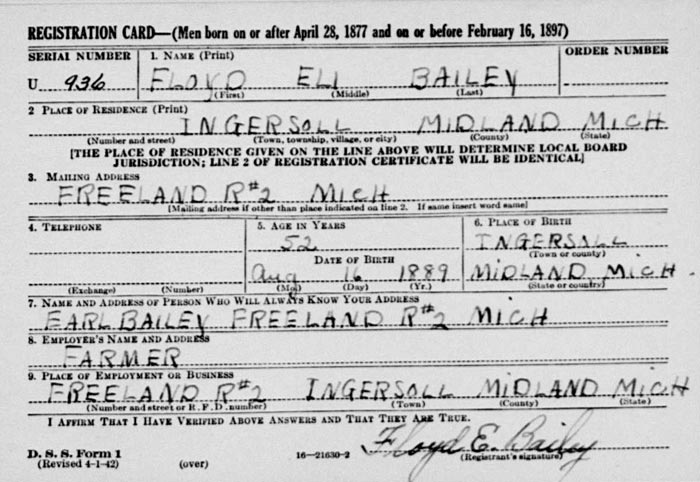 REGISTRATION CARD—(Men born on or after April 28, 1877 and on or before February 16, 1897)
SERIAL NUMBER 1. NAME (Print) ORDER NUMBER
U 936 FLOYD ELI BAILEY
(First) (Middle) (Last)
2 PLACE OF RESIDENCE (Print)
INGERSOLL MIDLAND MICH
(Number and street) (Town, township, village, or city) (County) (State)
[THE PLACE OF RESIDENCE GIVEN ON THE LINE ABOVE WILL DETERMINE LOCAL BOARD
JURISDICTION; LINE 2 OF REGISTRATION CERTIFICATE WILL BE IDENTICAL]
3. MAILING ADDRESS
FREELAND R#2 MICH
[Mailing address if other than place indicated on line 2. If same insert word same]
4. TELEPHONE 5. AGE IN YEARS 6. PLACE OF BIRTH
52 INGERSOLL
DATE OF BIRTH (Town or county)
Aug 16 1889 MIDLAND MICH.
(Exchange) (Number) (Mo.) (Day) (Yr.) (State or country)
7. NAME AND ADDRESS OF PERSON WHO WILL ALWAYS KNOW YOUR ADDRESS
EARL BAILEY FREELAND R#2 MICH
8. EMPLOYER'S NAME AND ADDRESS
FARMER
9. PLACE OF EMPLOYMENT OR BUSINESS
FREELAND R#2 INGERSOLL MIDLAND MICH
(Number and street or R. F. D. number) (Town) (County) (State)
I AFFIRM THAT I HAVE VERIFIED ABOVE ANSWERS AND THAT THEY ARE TRUE.
Floyd E. Bailey
D. S. S. Form 1 16—21630-2 (Registrant's signature)
(Revised 4-1-42) (over)